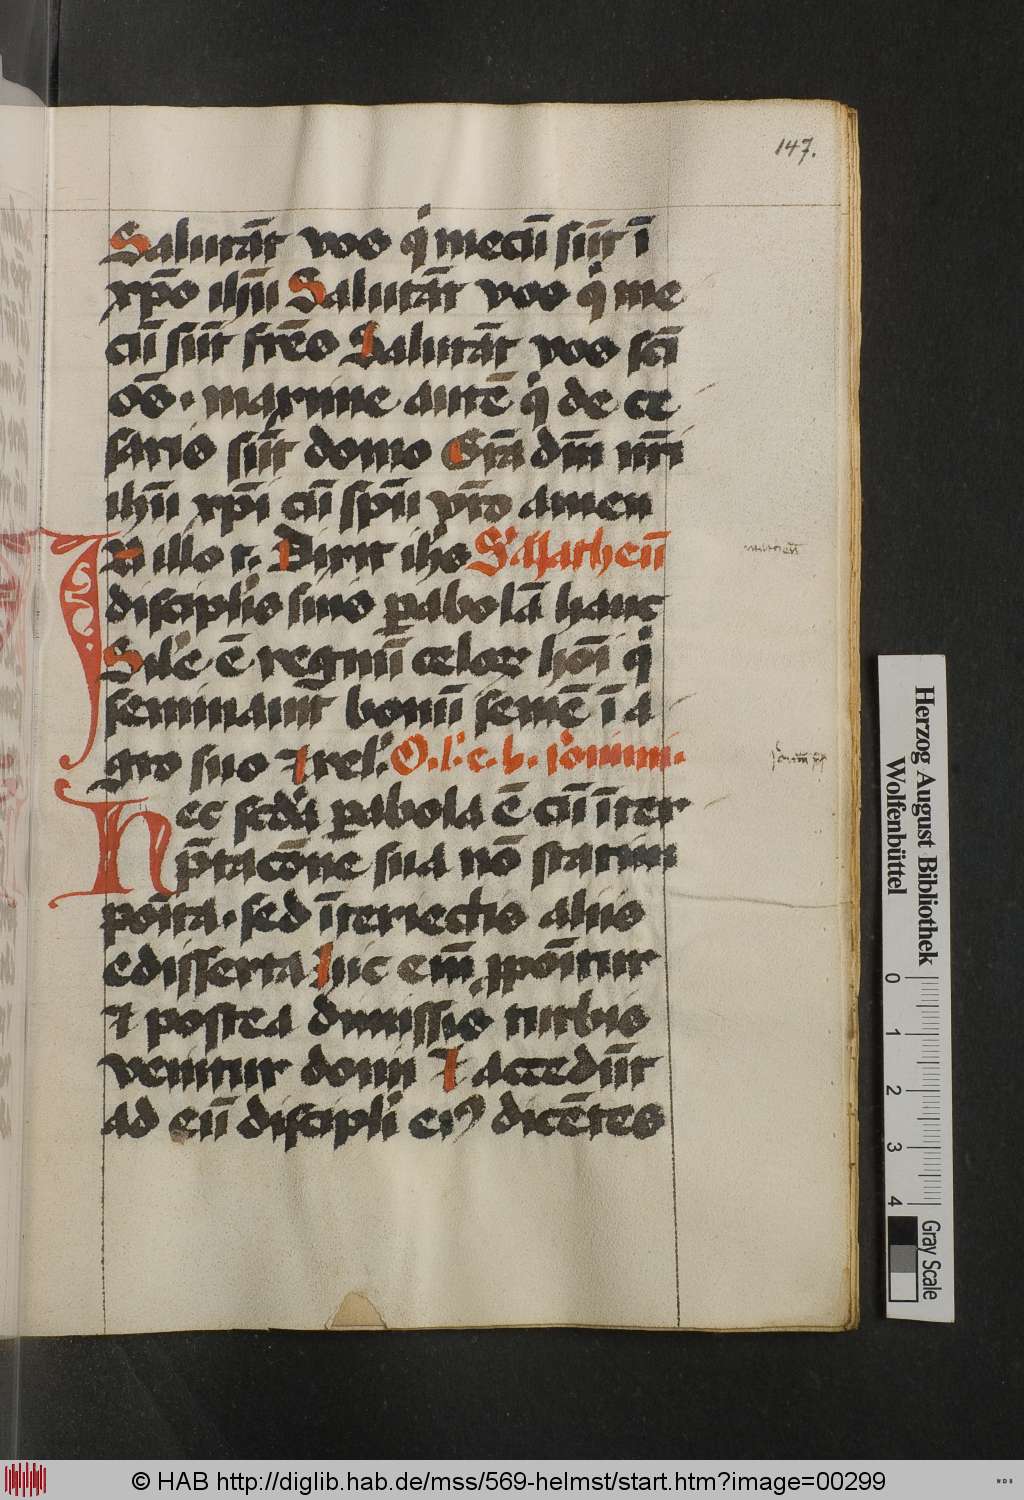 147.
Salutāt vos q̇ mecū sūt ī
xp̄o ihū Salutāt vos q̇ me
cū sūt fr̄es Salutāt vos sc̄i
oē̄s · maxime autē q̇ de ce
saris sūt domo Gr̄a dn̄i nr̄i
ihū xp̄i cū sp̄u vr̄o amen
IN illo t. Dixit ih̓s S. Matheū
discipl̓is suis ꝑabolā hanc
Sil̓e ē regnū celoꝝ hōi q̇
seminauit bonū semē ī a
gro suo ⁊ rel̓. O.l̓.e.b. ieronimi.
Hec scd̓a ꝑabola ē cū īter
p̄tacōne sua nō statim
po͞ita · sed īteriectis aliis
edisserta Hic em̄ ꝓpōitur
⁊ postea dimissis turbis
venitur domū ⁊ accedūt
ad eū discipl̓i eiꝰ dicētes
Herzog August Bibliothek
Wolfenbüttel
0 1 2 3 4
Gray Scale
© HAB http://diglib.hab.de/mss/569-helmst/start.htm?image=00299